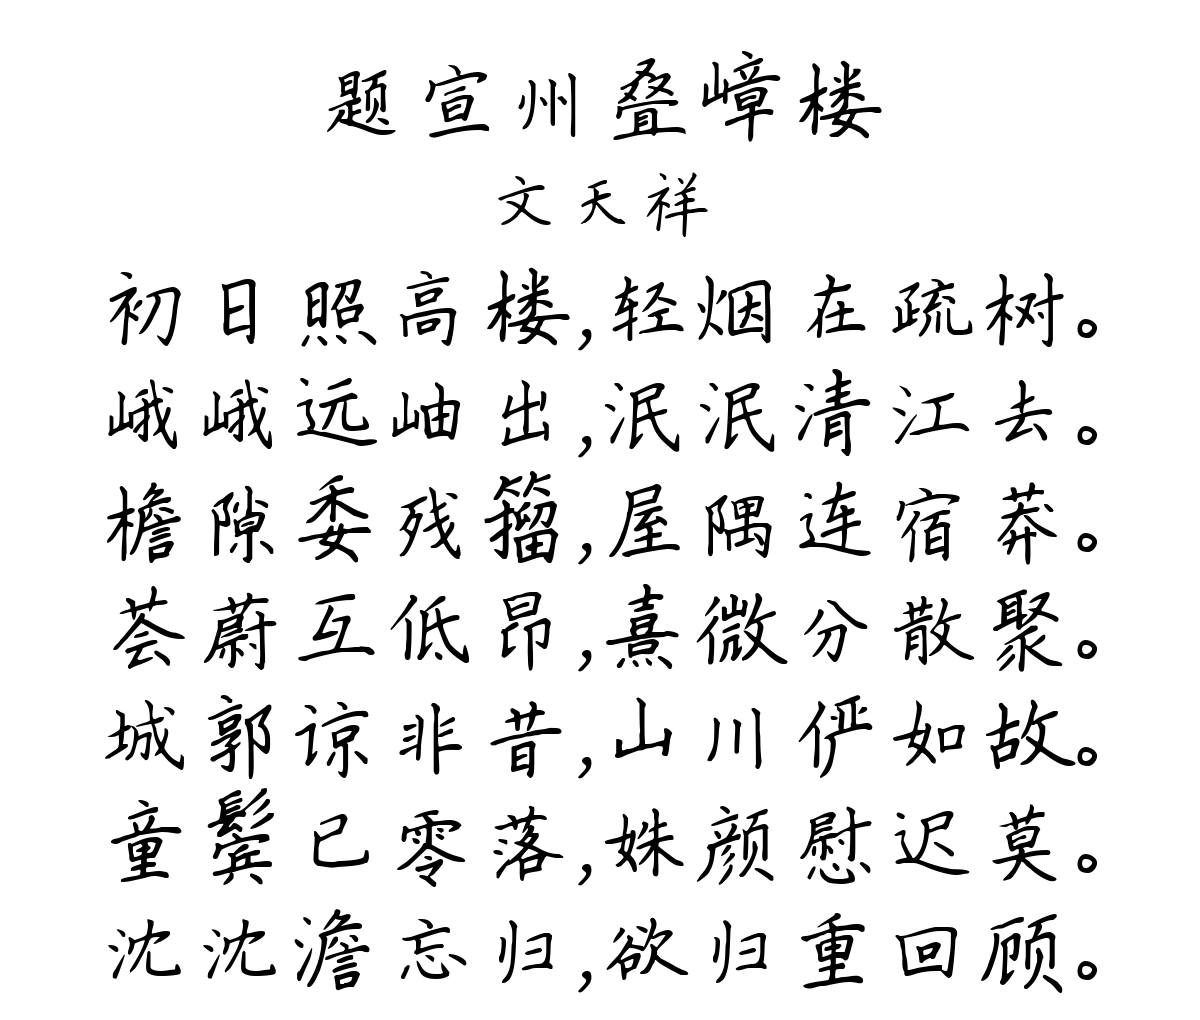 题宣州叠嶂楼
文天祥
初日照高楼,轻烟在疏树。
峨峨远岫出,泯泯清江去。
檐隙委残籀,屋隅连宿莽。
荟蔚互低昂,熹微分散聚。
城郭谅非昔,山川俨如故。
童鬓已零落,姝颜慰迟莫。
沈沈澹忘归,欲归重回顾。